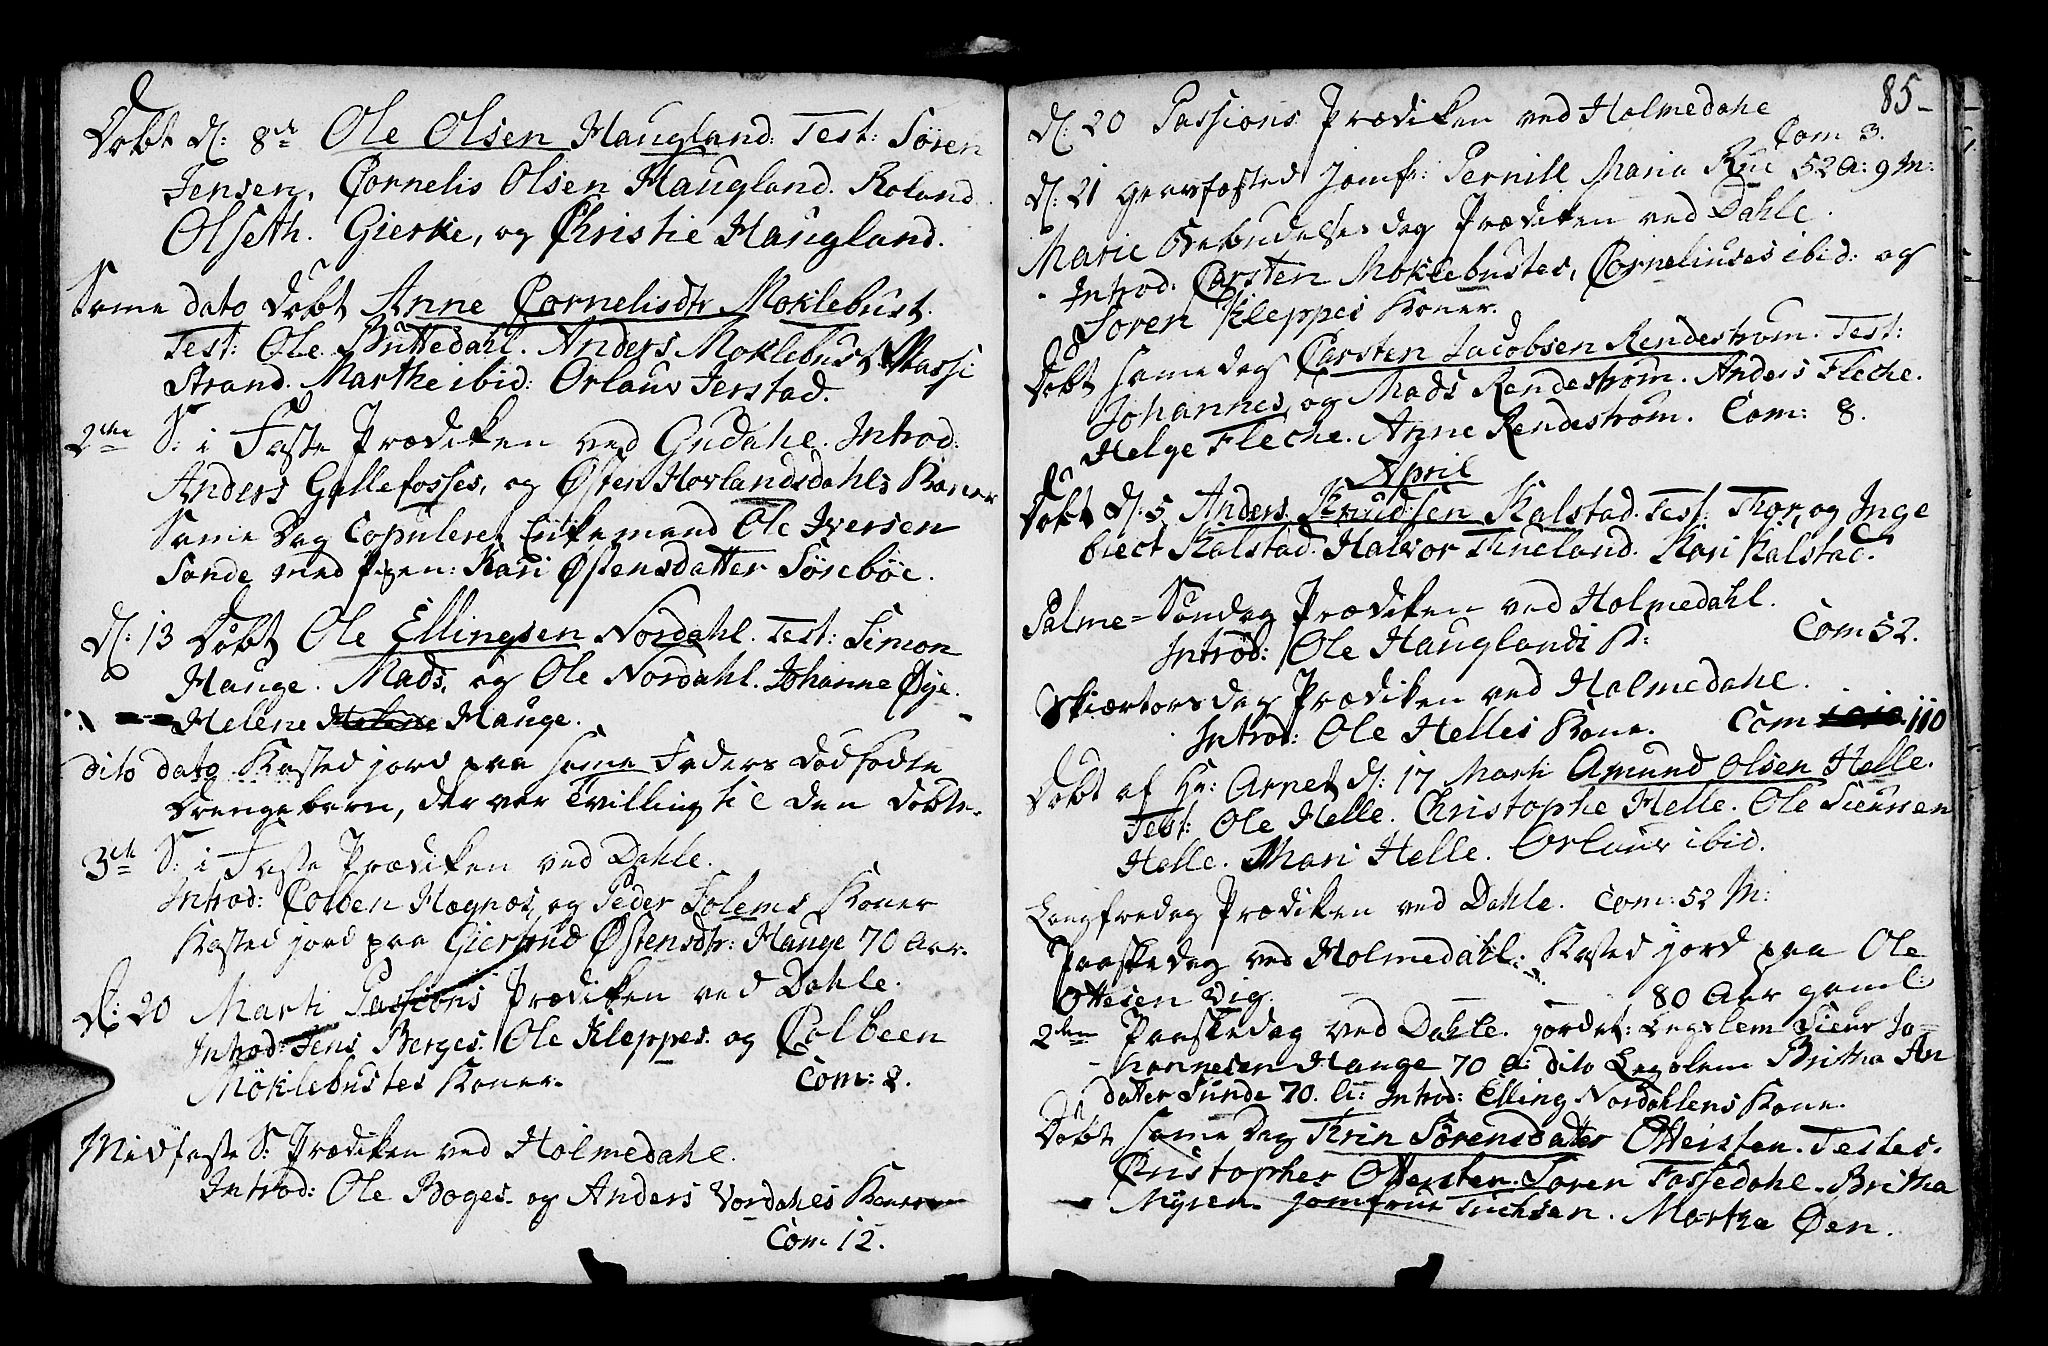 Døbt d: 8de Ole Olsen Haugland. Test: Søren
Jensen, Cornelis Olsen Haugland. Roland
Olseth. Gierke, og Christie Haugland.
Same dato døbt Anne Cornelisdtr Moklebust.
Test: Ole Büttedahl. Anders Moklebust
Strand. Marthe ibid: Orlaur Jerstad.
2den S: i Faste Prædiken ved Gudahl. Introd:
Anders Gallefosses, og Østen Hovlandsdahls Koner
Same Dag Copuleret Enkemand Ole Iversen
Sande med Pigen: Kari Østensdatter Sørebøe.
d: 13 Døbt Ole Ellingsen Nordahl. Test: Simon
Hauge. Mads, og Ole Nordahl. Johanne Øye.
Helene Hauge.
dito dato Kasted jord paa same Faders dødfødte
Drengebarn, der var Tvilling til den døbte.
3de S: i Faste Prædiken ved Dahle.
Introd: Colben Hægnøs, og Peder Solems Koner
Kasted jord paa Giertrud Østensdtr: Hauge 70 Aar.
d: 20 Marti Passions Prædiken ved Dahle.
Introd: Jens Berges. Ole Kleppes. og Colbeen
Möklebustes Koner. Com: 2.
Midfaste S: Prædiken ved Holmedahl.
Introd: Ole Boges. og Anders Vordahls Koner
Com 12.
85
d: 20 Passions Prædiken ved Holmedahl
Com 3.
d: 21 Graffæsted Jomfr: Pernill Maria 52 A: 9 M:
Marie Bebudelses dag Prædiken ved Dahle.
Introd: Carsten Moklebustes, Corneliuses ibid: og
Soren Kleppes Koner.
Døbt same dag Carsten Jacobsen Rendestrøm. Test:
Johannes, og Mads Rendestrøm. Anders Fleche.
Helge Fleche. Anne Rendestrøm. Com: 8.
April
Døbt d: 5 Anders Knudsen Kalstad. Test: Thor, og Inge
biect Kalstad. Halvor Tineland. Kari Kalstad.
Palme=Søndag Prædiken ved Holmedahl.
Introd: Ole Hauglands K: Com 52.
Skiærtorsdag Prædiken ved Holmedahl.
Introd: Ole Helles Kone. Com 110
Døbt af Hr: Arnet d: 17 Marti Amund Olsen Helle.
Test: Ole Helle. Christophe Helle. Ole Siursen
Helle. Mari Helle. Orlaur ibid.
Langfredag Prædiken ved Dahle. Com: 52 M:
Paaskedag ved Holmedahl: Kasted jord paa Ole
Ottesen Vig. 80 Aar gaml:
2den Paaskedag ved Dahle. jordet: Legslem Siur Jo=
hannesen Hauge 70 A: dito Legslem Britha An
datter Sunde 70. Introd: Elling Nordahlens Kone.
Døbt same Dag Trin Sørensdatter Otteisten. Testes.
Christopher Otteisten. Soren Fossedahl. Britha
Myren. Jomfrue Tuchsen. Martha Øen.